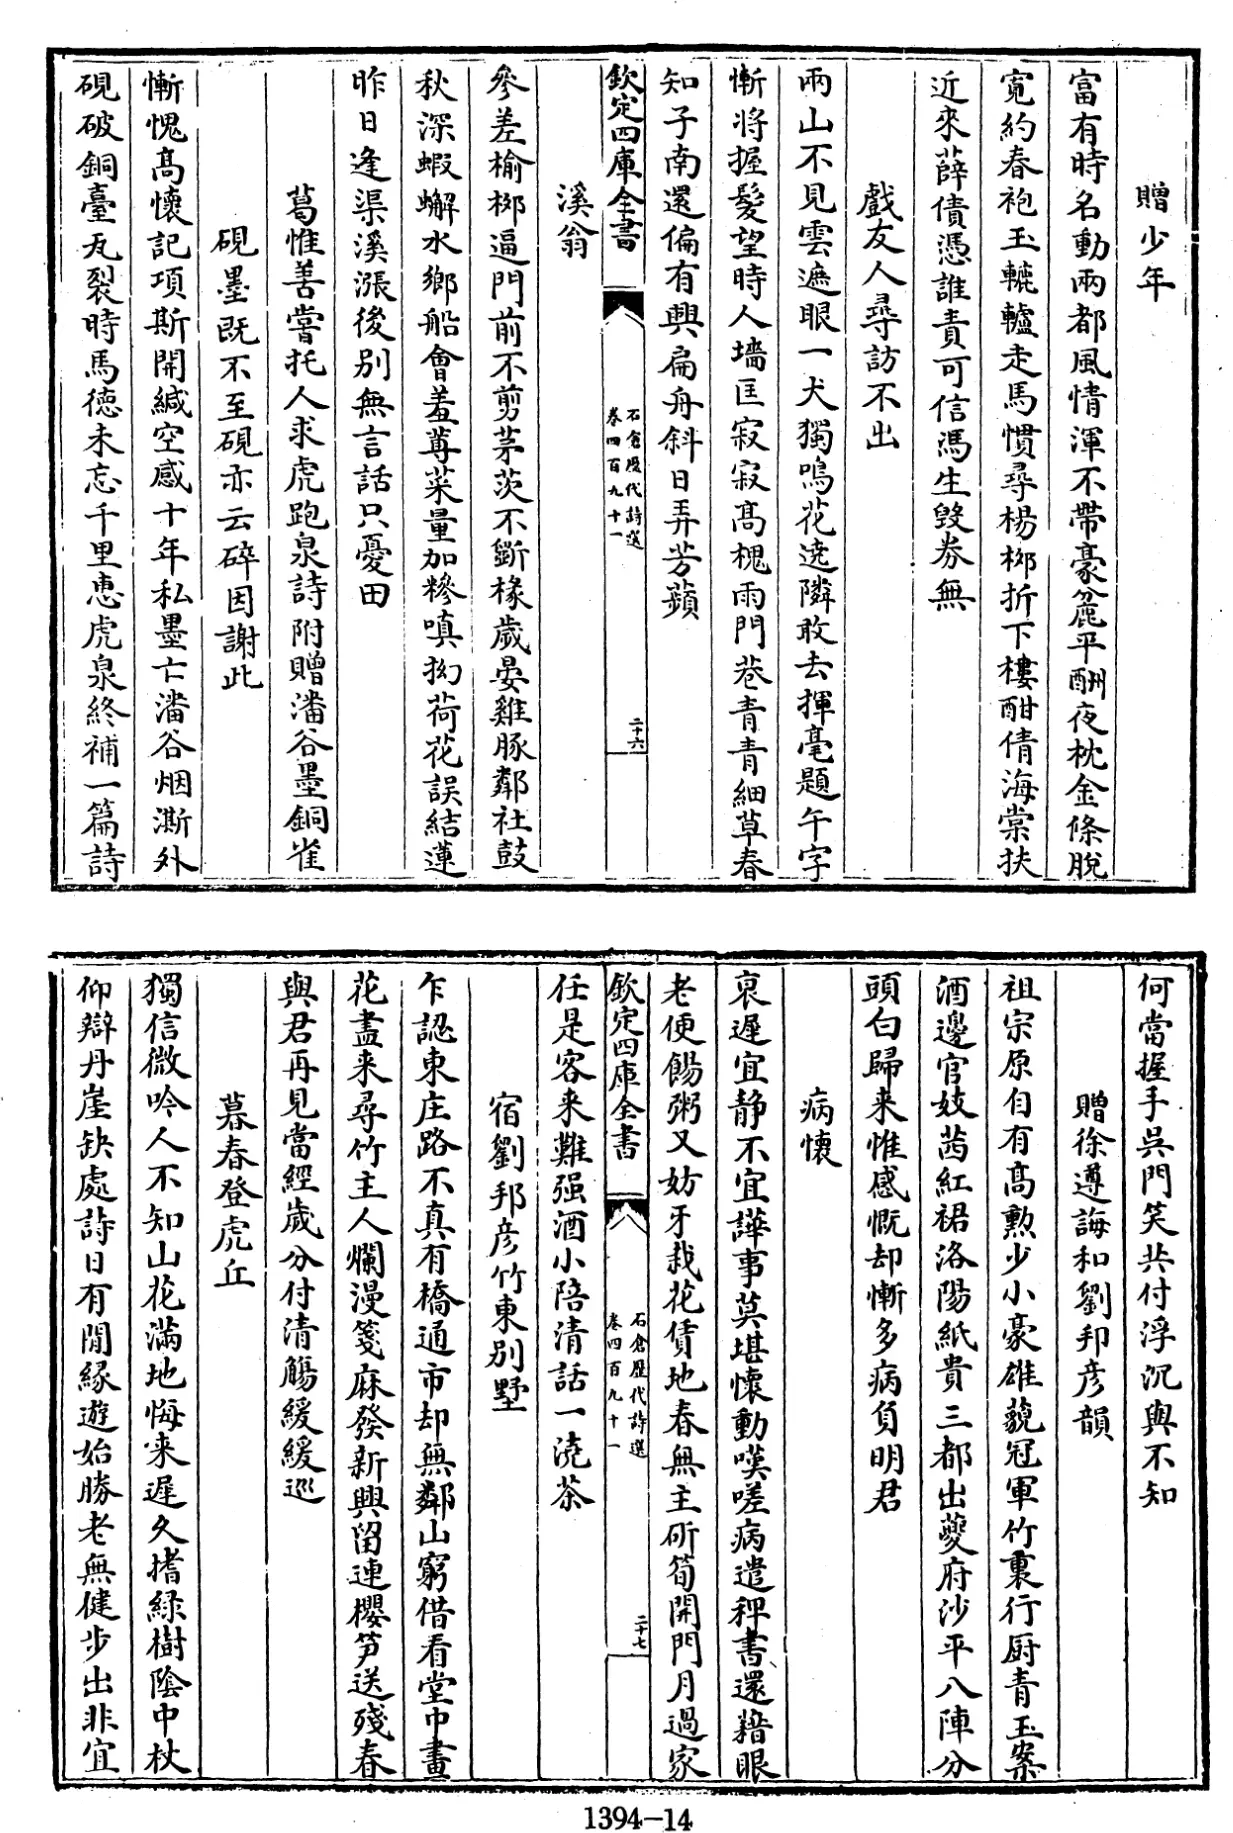 贈少年
富有時名動兩都風情渾不帶豪麄平酬夜枕金條脫
寛約春袍玉轆轤走馬慣尋楊栁折下樓酣倩海棠扶
近來薛債憑誰責可信馮生毁劵無
戲友人尋訪不出
兩山不見雲遮眼一犬獨鳴花遶隣敢去揮毫題午字
慚將握髪望時人墻匡寂寂髙槐雨門巷青青細草春
知子南還偏有興扁舟斜日弄芳蘋
欽定四庫全書
石倉歴代詩選
卷四百九十一
二十六
溪翁
參差榆栁逼門前不剪茅茨不斷椽歲晏雞豚鄰社鼓
秋深蝦蠏水鄉船會羞蓴菜量加糝嗔拗荷花誤結蓮
昨日逢渠溪漲後别無言話只憂田
葛惟善嘗托人求虎跑泉詩附贈潘谷墨銅雀
硯墨既不至硯亦云碎因謝此
慚愧髙懷記項斯開緘空感十年私墨亡潘谷烟澌外
硯破銅臺瓦裂時馬德未忘千里恵虎泉終補一篇詩
何當握手吳門笑共付浮沉與不知
贈徐遵誨和劉邦彦韻
祖宗原自有髙勲少小豪雄藐冠軍竹裏行厨青玉案
酒邊官妓茜紅裙洛陽紙貴三都出夔府沙平八陣分
頭白歸来惟感慨却慚多病負明君
病懐
衰遲宜静不宜譁事莫堪懐動嘆嗟病遣稗書還藉眼
老便餳粥又妨牙栽花賃地春無主斫筍開門月過家
欽定四庫全書
石倉歴代詩選
卷四百九十一
二十七
任是客来難强酒小陪清話一澆茶
宿劉邦彦竹東别墅
乍認東庄路不真有橋通市却無鄰山窮借看堂中畫
花盡来尋竹主人爛漫箋麻發新興留連櫻笋送殘春
與君再見當經歲分付清觴緩緩巡
暮春登虎丘
獨信微吟人不知山花滿地悔来遲久㩼緑樹隂中杖
仰辯丹崖缺處詩日有閒緣遊始勝老無健步出非宜
1394-14